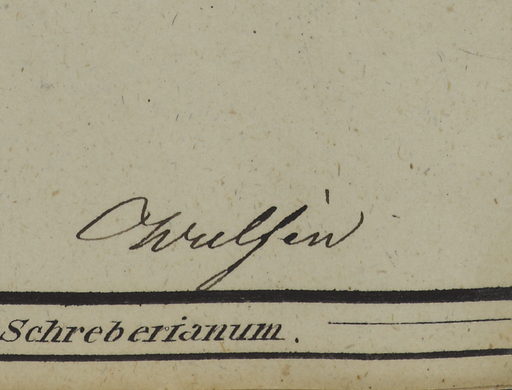 Wulfen
Schreberianum.